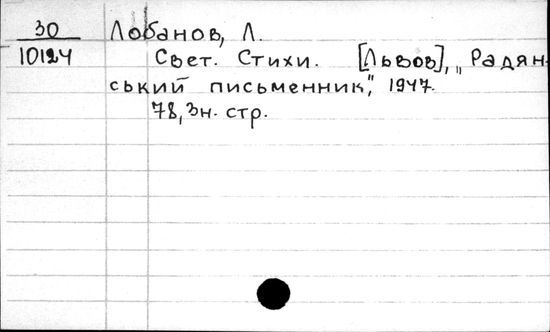 30
10124
Лобанов, Л.
Свет. Стихи. [Львов], „Радян-
ський письменник", 1947.
78, 3н. стр.